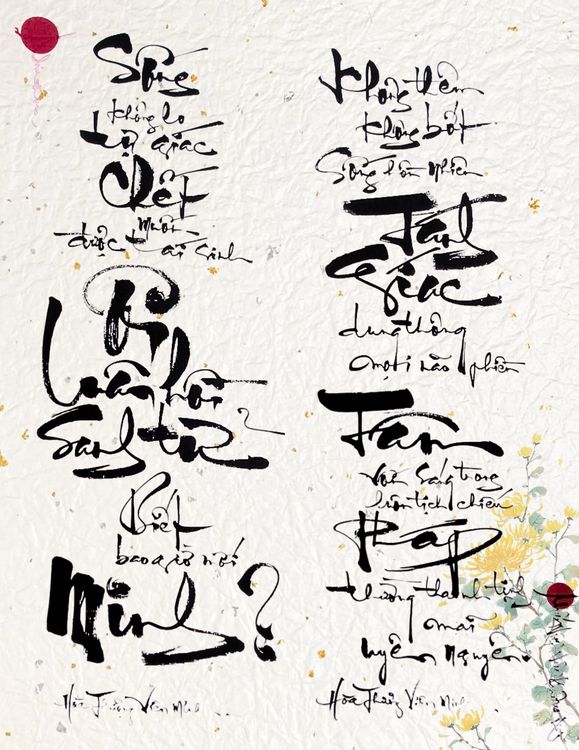 Sống
không lo
tự giác
Chết
muốn
được tái sinh
Luân hồi
sanh tử
Biết
bao giờ mới
Minh?
Hòa Thượng Viên Minh...
Không thêm
không bớt
Sống hồn nhiên
Tánh
Giác
dung thông
mọi não phiền
Tâm
vốn sáng trong
luôn tịch chiếu
Pháp
thường thanh tịnh
mãi
uyên nguyên.
Hòa Thượng Viên Minh...